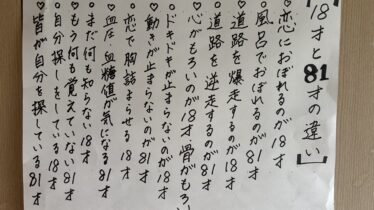 【18才と81才の違い】
○恋におぼれるのが18才
○風呂でおぼれるのが81才
○道路を爆走するのが18才
○道路を逆走するのが81才
♡心がもろいのが18才 骨がもろい
○ドキドキが止まらないのが18才
♡動きが止まらないのが81才
○恋で胸詰まらせる 18才
○血圧・血糖値が気になる 81才
○まだ何も知らない 18才
♡もう何も覚えていない 81才
○自分探しをしている 18才
♡皆が自分を探している 81才